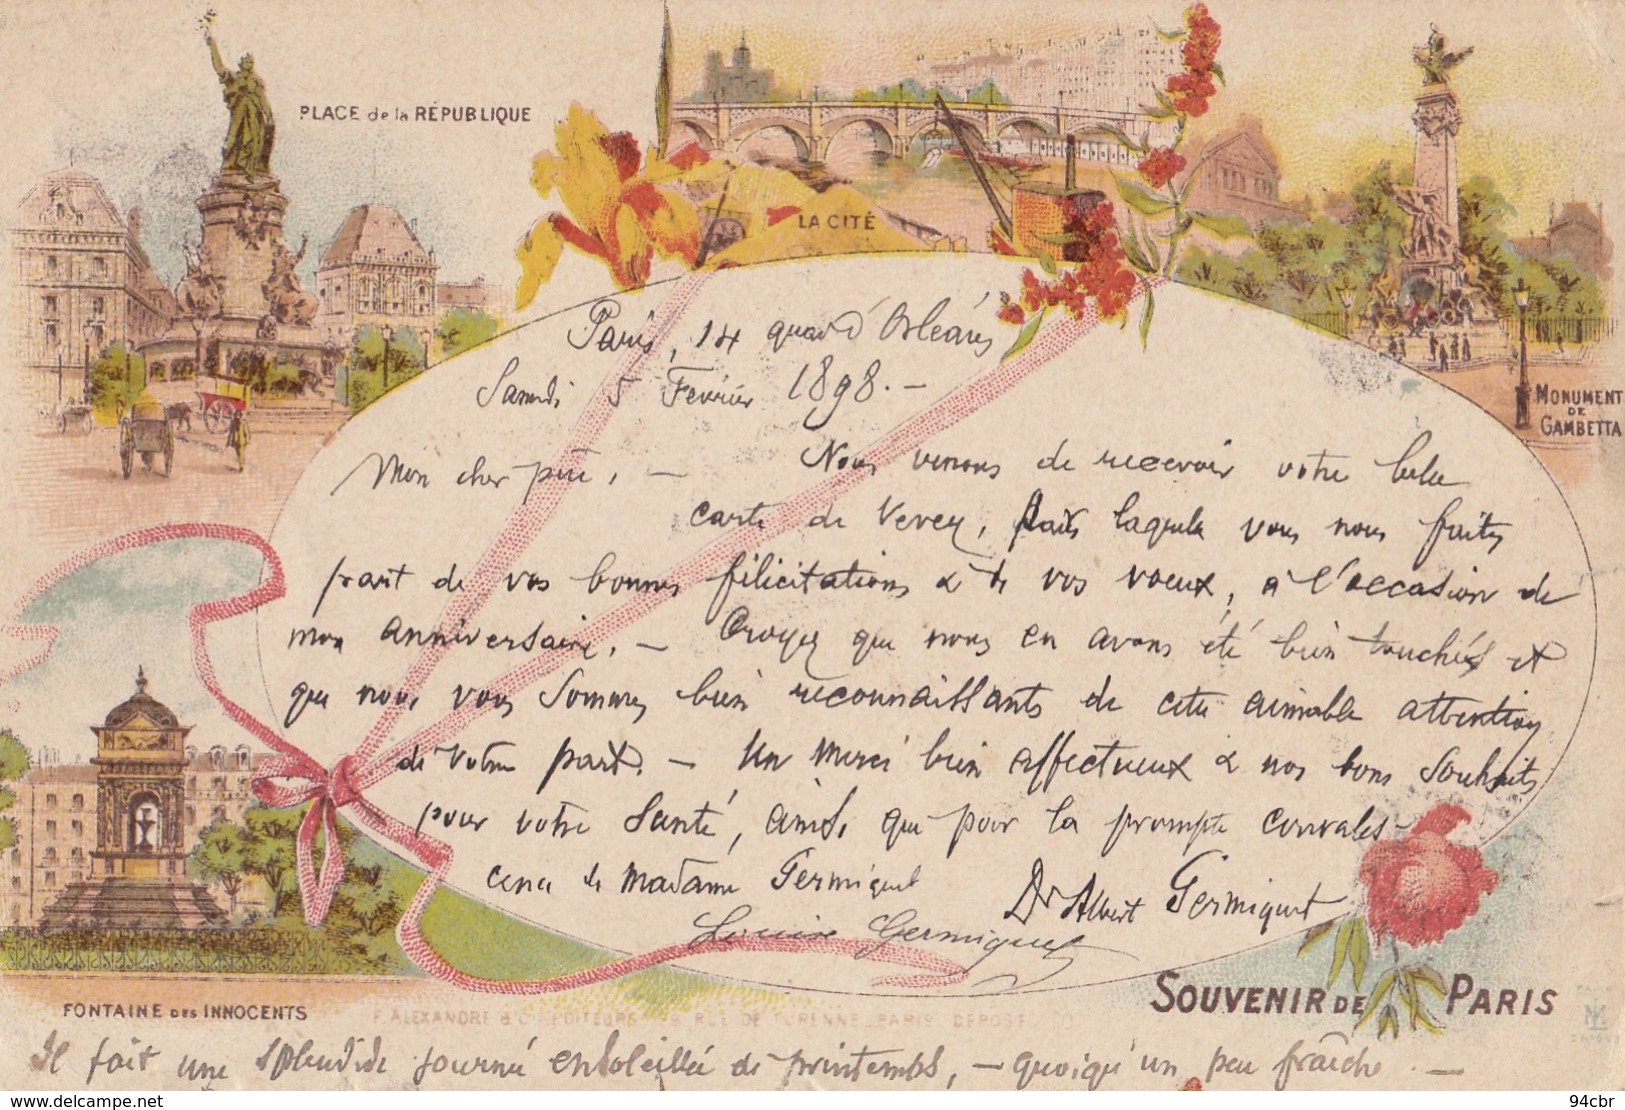 PLACE de la RÉPUBLIQUE
LA CITÉ
MONUMENT
DE
GAMBETTA
Paris, 14 quai d'Orléans
Samedi 5 Février 1898. -
Mon cher père, - Nous venons de recevoir votre belle
carte de Vevey, par laquelle vous nous faites
part de vos bonnes félicitations & de vos voeux, à l'occasion de
mon anniversaire. - Croyez que nous en avons été bien touchés et
que nous vous sommes bien reconnaissants de cette aimable attention
de votre part. - Un merci bien affectueux & nos bons souhaits
pour votre santé, ainsi que pour la prompte convales-
cence de Madame Germiquet
Dr Albert Germiquet
Louise Germiquet
FONTAINE DES INNOCENTS
F. ALEXANDRE & Cie EDITEURS RUE DE TURENNE PARIS DEPOSE
SOUVENIR DE PARIS
Il fait une splendide journée ensoleillée de printemps, - quoiqu'un peu fraîche. -
www.delcampe.net
94cbr